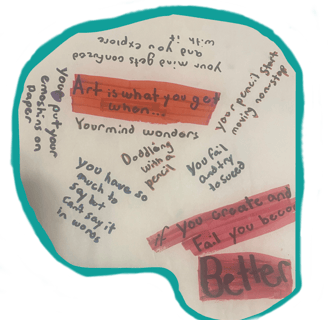 Art is what you get
when...
Your mind wonders
Doddling
with a
pencil
you fail
and try
to suceed
your pencil start
moving nonstop
your mind gets confused
and you explore
with it
you put your
emoshins on
paper
you have so
much to
say but
can't say it
in words
if you create and
Fail you become
Better